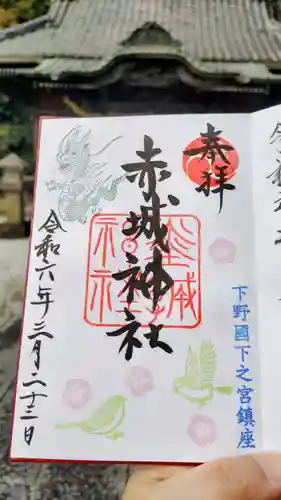 奉拝
赤城神社
令和六年三月二十三日
下野國下之宮鎮座